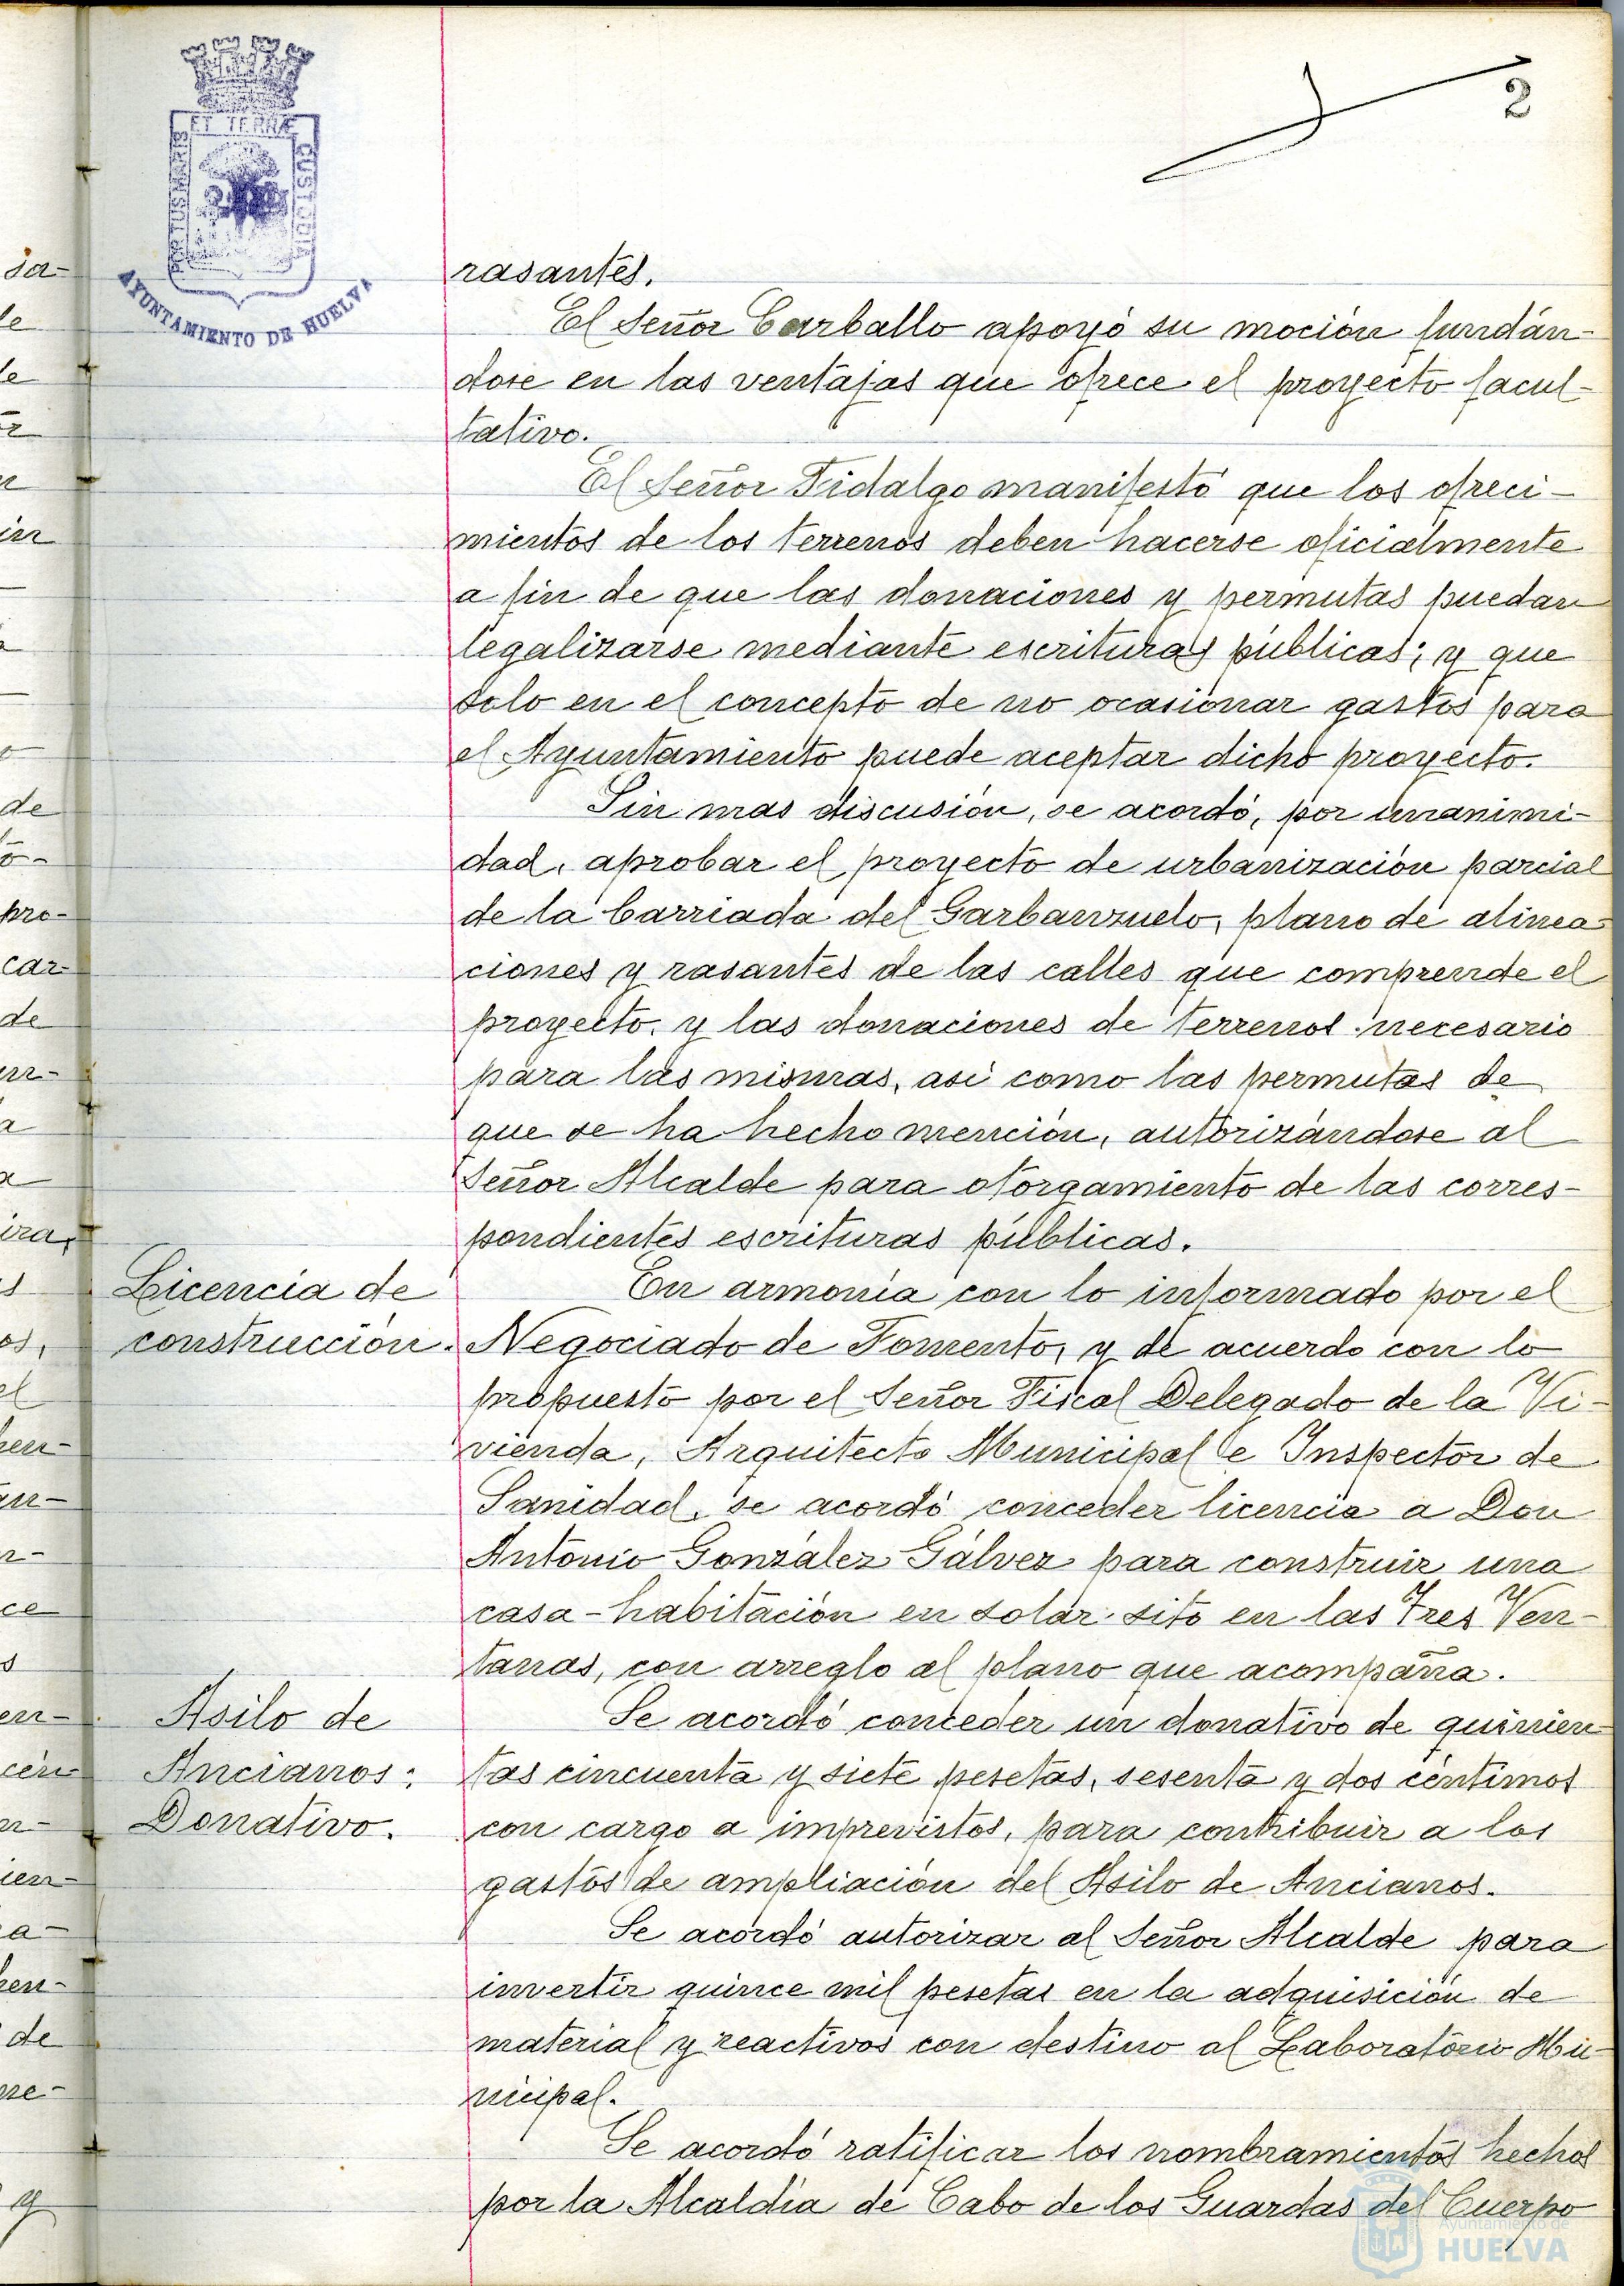 2
PORTUS MARIS
ET TERRÆ
CUSTODIA
AYUNTAMIENTO DE HUELVA
rasantes.
El Señor Carballo apoyó su moción fundán-
dose en las ventajas que ofrece el proyecto facul-
tativo.
El Señor Fidalgo manifestó que los ofreci-
mientos de los terrenos deben hacerse oficialmente
a fin de que las donaciones y permutas puedan
legalizarse mediante escrituras públicas; y que
solo en el concepto de no ocasionar gastos para
el Ayuntamiento puede aceptar dicho proyecto.
Sin mas discusión, se acordó, por unanimi-
dad, aprobar el proyecto de urbanización parcial
de la barriada del Garbanzuelo, plano de alinea-
ciones y rasantes de las calles que comprende el
proyecto, y las donaciones de terrenos necesario
para las mismas, asi como las permutas de
que se ha hecho mención, autorizándose al
Señor Alcalde para otorgamiento de las corres-
pondientes escrituras públicas.
Licencia de
construcción.
En armonía con lo informado por el
Negociado de Fomento, y de acuerdo con lo
propuesto por el Señor Fiscal Delegado de la Vi-
vienda, Arquitecto Municipal e Inspector de
Sanidad, se acordó conceder licencia a Don
Antonio González Gálvez para construir una
casa-habitación en solar sito en las Tres Ven-
tanas, con arreglo al plano que acompaña.
Asilo de
Ancianos:
Donativo.
Se acordó conceder un donativo de quinien-
tas cincuenta y siete pesetas, sesenta y dos céntimos
con cargo a imprevistos, para contribuir a los
gastos de ampliación del Asilo de Ancianos.
Se acordó autorizar al Señor Alcalde para
invertir quince mil pesetas en la adquisición de
material y reactivos con destino al Laboratorio Mu-
nicipal.
Se acordó ratificar los nombramientos hechos
por la Alcaldía de Cabo de los Guardas del Cuerpo
Ayuntamiento de
HUELVA